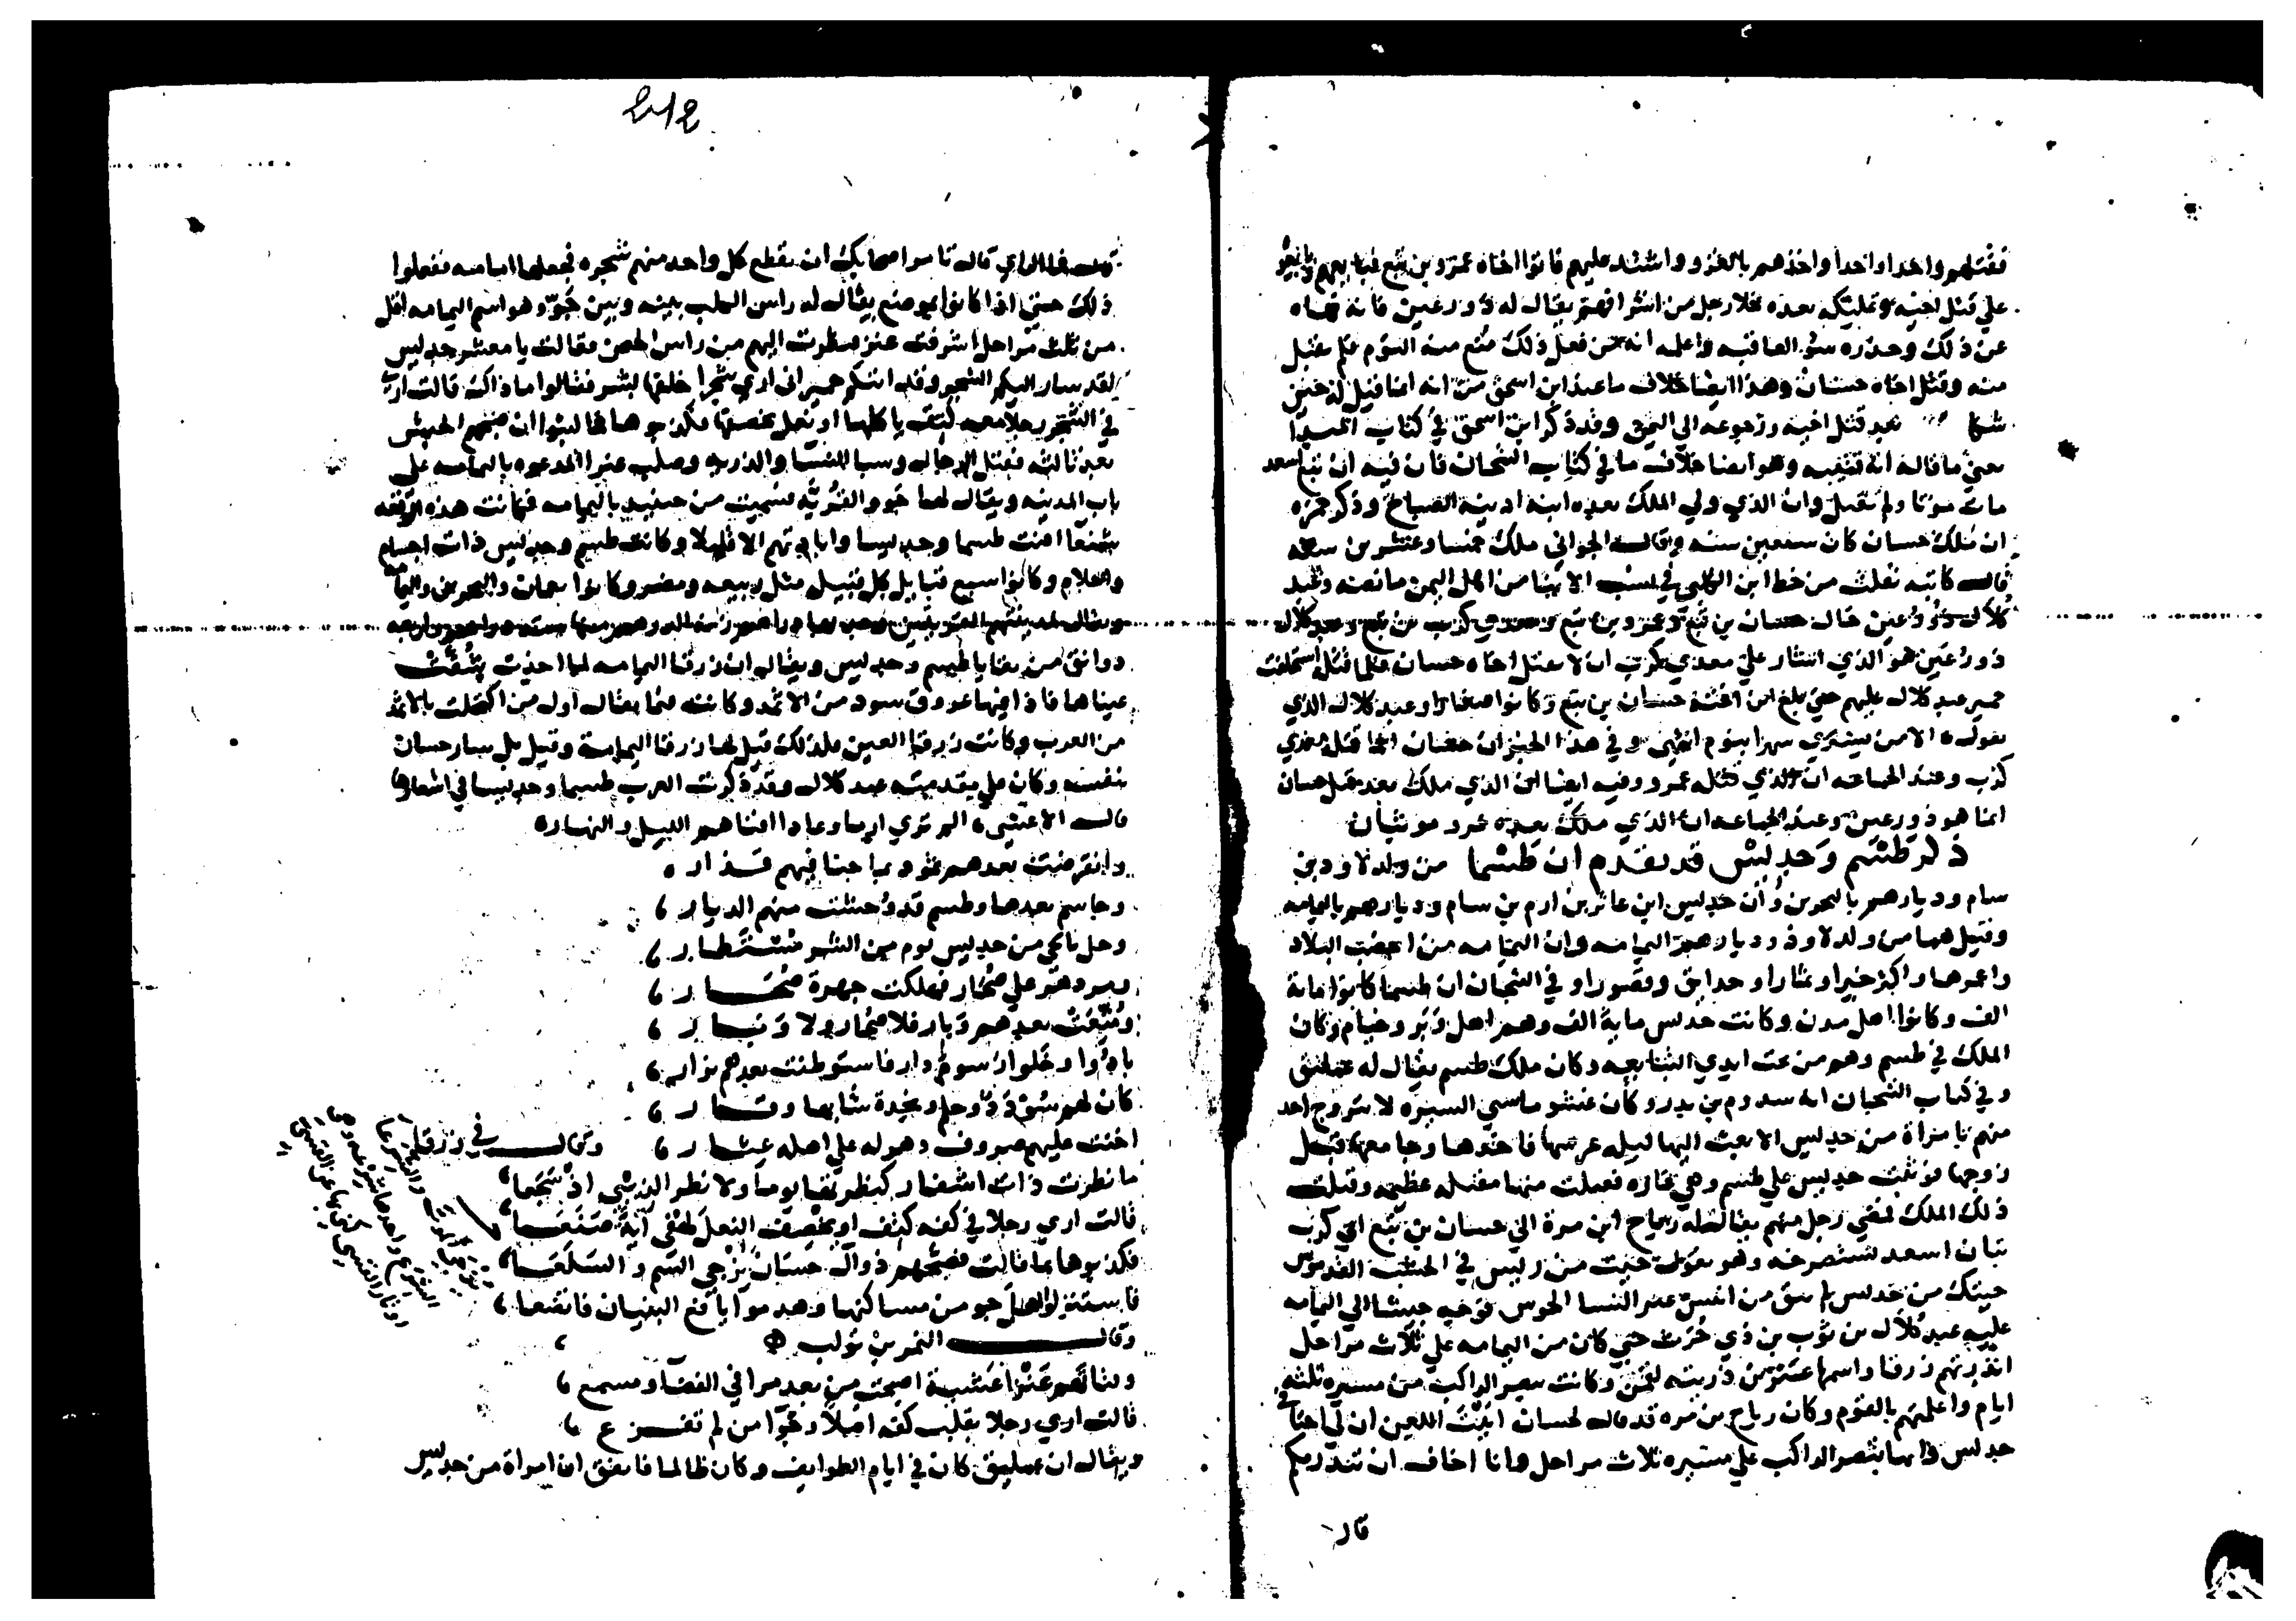 فقتلهم واحدا واحدا واخذهم بالغزو واشتد عليهم فاتوا اخاه عمرو بن تبع فبايعهم وبايعوه
علي قتل اخيه وتمليكه بعده خلا رجل من اشرافهم يقال له ذو رعين فانه نهاه
عن ذلك وحذره سوء العاقبه واعلمه انه من فعل ذلك منع منه النوم فلم يقبل
منه وقتل اخاه حسان وهذا ايضا خلاف ما عند ابن اسحق من انه انما قيل له حين
بعد قتل اخيه ورجوعه الي اليمن وقد ذكر ابن اسحق في كتاب المبتدا
يعني ما قاله ابن قتيبه وهو ايضا خلاف ما في كتاب التيجان فان فيه ان تبع اسعد
مات موتا ولم يقتل وان الذي ولي الملك بعده ابنه الصباح وذكر حمزه
ان ملك حسان كان سبعين سنه وقال الجواني ملك خمسا وعشرين سنه
قال كاتبه نقلت من خط ابن الكلبي في نسب الابنا من اهل اليمن ما نصه وعبد
كلال ذو رعين خال حسان بن تبع وعمرو بن تبع ومعدي كرب بن تبع وعبد كلال
ذو رعين هو الذي اشار علي معدي كرب ان لا يقتل اخاه حسان فلما قتل استخلفت
حمير عبد كلال عليهم حتي بلغ ابن اخته حسان بن تبع وكانوا صغارا وعبد كلال الذي
يقول ه الا من يشتري سهرا بنوم انتهي وفي هذا الخبر ان حسان انما قتله معدي
كرب وعند الجماعه ان الذي قتله عمرو وفيه ايضا ان الذي ملك بعد قتل حسان
انما هو ذو رعين وعند الجماعه ان الذي ملك بعده عمرو موثبان
ذكر طسم وجديس قد تقدم ان طسما من ولد لاود بن
سام وديارهم بالبحرين وان جديس ابن عاثر بن ارم بن سام وديارهم باليمامه
وقيل هما من ولد لاوذ وديارهم اليمامه وان اليمامه من اخصب البلاد
واعمرها واكثر خيرا وثمارا وحدايق وقصورا وفي التيجان ان طسما كانوا ماية
الف وكانوا اهل مدن وكانت جديس ماية الف وهم اهل وبر وخيام وكان
الملك في طسم وهو من تحت ايدي التبابعه وكان ملك طسم يقال له عمليق
وفي كتاب التيجان انه سدوم بن بدر وكان غشوما سيي السيره لا يتزوج احد
منهم بامراة من جديس الا بعث اليها ليله عرسها فاخذوها وجامعها قبل
زوجها فوثبت جديس علي طسم وهي غاره فقتلت منها مقتله عظيمه وقتلت
ذلك الملك فمضي رجل منهم يقال له رياح ابن مرة الي حسان بن تبع ابي كرب
تبان اسعد يستصرخه وهو يقول
جيتك من جديس فوجه جيشا الي اليمامه
عليه عبد كلال بن مثوب بن ذي حرث حتي كان من اليمامه علي ثلاث مراحل
انذرتهم زرقا واسمها عنز من ذرية لقمن وكانت تبصر الراكب من مسيره ثلثة
ايام واعلمتهم بالقوم وكان رياح بن مره قد قال لحسان ابيت اللعين ان لي اختا في
جديس وانها تبصر الراكب علي مسيره ثلاث مراحل وانا اخاف ان تنذر بكم
قال
212
قال فما الراي قال تامر اصحابك ان يقطع كل واحد منهم شجره فيجعلها امامه ففعلوا
ذلك حتي اذا كانوا بموضع يقال له راس الكلب بينه وبين جو وهو اسم اليمامه اقل
من ثلث مراحل اشرفت عنز فنظرت اليهم من راس الحصن فقالت يا معشر جديس
لقد سار اليكم الشجر وقد اتتكم حمير اني اري شجرا خلفها بشر فقالوا ما ذاك قالت اري
في الشجر رجلا معه كتف ياكلها او نعل يخصفها فكذبوها فما لبثوا ان صبحهم الجيش
بعد ثالثه فقتل الرجال وسبا النسا والذريه وصلب عنزا المدعوه باليمامه علي
باب المدينه ويقال لها جو والقريه فسميت من حينيد باليمامه فكانت هذه الوقعه
شنعا افنت طسما وجديسا وابادتهم الا قليلا وكانت طسم وجديس ذات اجسام
واحلام وكانوا سبع قبايل كل قبيل مثل ربيعه ومضر وكانوا بعمان والبحرين واليمامه
من بقايا طسم وجديس ويقال ان زرقا اليمامه لما اخذت شقت
عيناها فاذا فيها عروق سود من الاثمد وكانت فيما يقال اول من اكتحلت بالاثمد
من العرب وكانت زرقا العين فلذلك قيل لها زرقا اليمامه وقيل بل سار حسان
بنفسه وكان علي مقدمته عبد كلال وقد ذكرت العرب طسما وجديسا في اشعارها
قال الاعشي ه الم تري ارما وعادا افناهم الليل والنهار ه
وانقرضت بعدهم ثمود بما جنا فيهم قدار ه
وجاسم بعدها وطسم قد وحشت منهم الديار
وحل بالحي من جديس يوم من الشر مستطار
ومر دهر علي صحار فهلكت جهرة صحار
ومتعت بعدهم وبار فلا صحار ولا وبار
بادوا وخلوا رسوم دار فاستوطنت بعدهم نزار
كان لهم سوددو حلم ونجدة شابها وقار
اخنت عليهم صروف دهر له علي اهله عثار وقال في زرقا
ما نظرت ذات اشفار كنظرتها يوما ولا نظر الذيبي اذ سجعا
قالت اري رجلا في كفه كتف او يخصف النعل لهفي اية صنعا
فكذبوها بما قالت فصبحهم ذو آل حسان يزجي السم والسلعا
فاستنزلوا اهل جو من مساكنها وهدموا يافع البنيان فاتضعا
وقال النمر بن تولب
قالت اري رجلا يقلب كفه اصلا وجوا من لم تفزع
ويقال ان عمليق كان في ايام الطوايف وكان ظالما فاتفق ان امراة من جديس